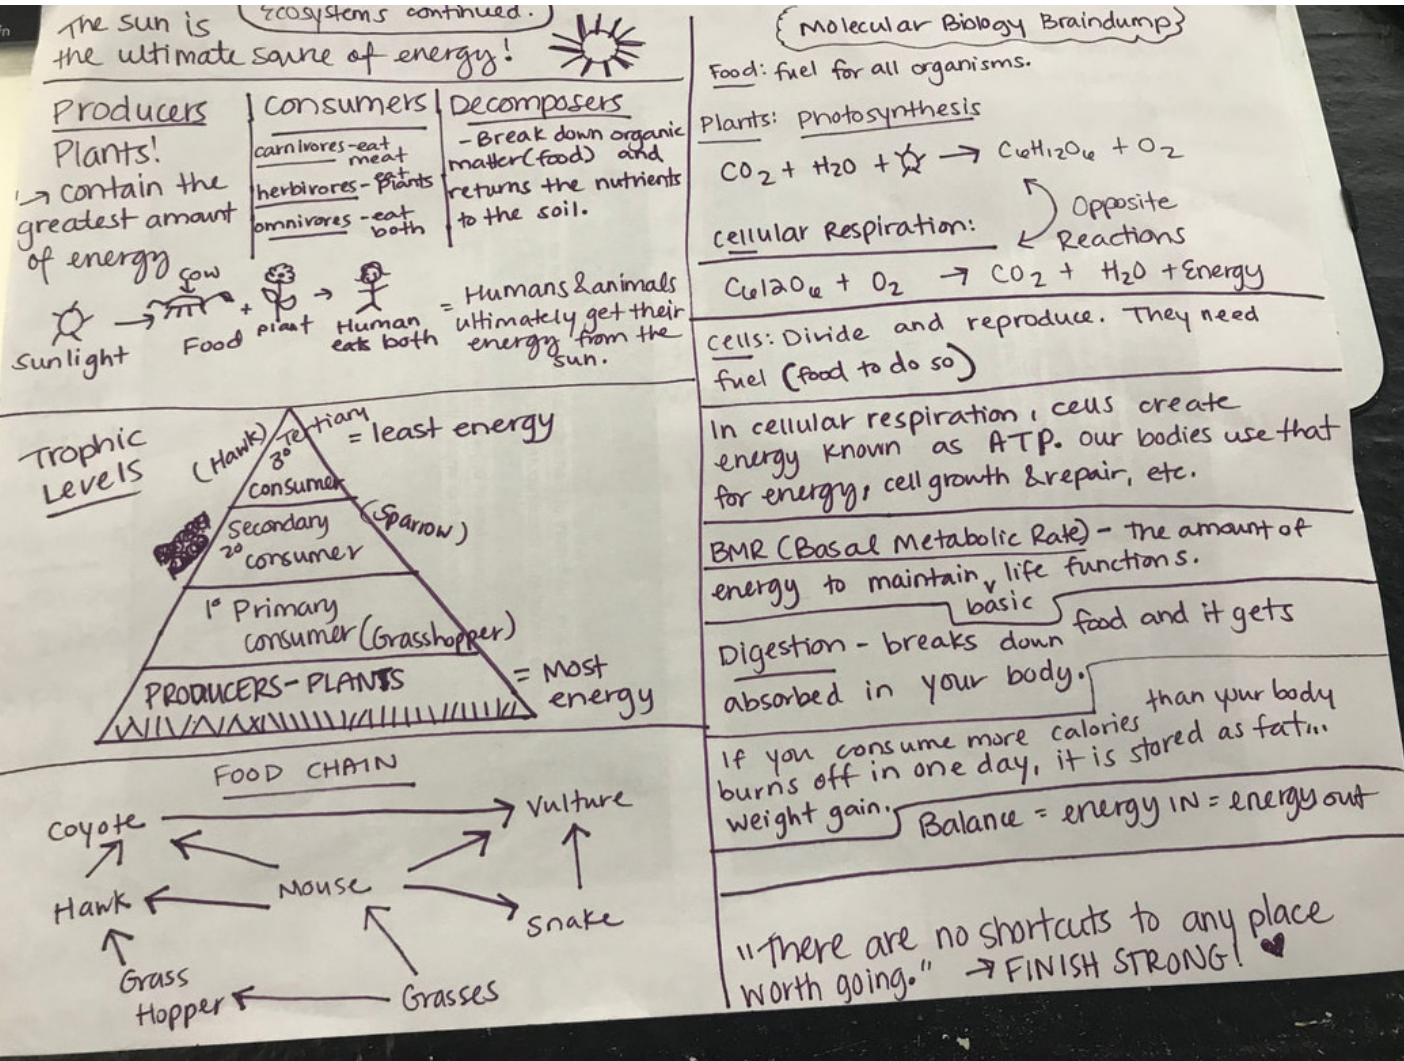 The sun is
the ultimate source of energy!
Ecosystems continued.
Producers
Plants!
↳ contain the
greatest amount
of energy
Consumers
carnivores-eat
meat
herbivores-eat
plants
omnivores-eat
both
Decomposers
-Break down organic
matter(food) and
returns the nutrients
to the soil.
sunlight
→
cow
Food
+
plant
→
Human
eats both
= Humans & animals
ultimately get their
energy from the
sun.
Trophic
Levels
(Hawk)
Tertiary
3°
consumer
= least energy
Secondary
2° consumer
(Sparrow)
1° Primary
consumer (Grasshopper)
PRODUCERS-PLANTS
= Most
energy
FOOD CHAIN
Coyote
Vulture
Hawk
Mouse
Snake
Grass
Hopper
Grasses
Molecular Biology Braindump
Food: fuel for all organisms.
Plants: Photosynthesis
CO2 + H2O + → C6H12O6 + O2
Opposite
Reactions
Cellular Respiration:
C612O6 + O2 → CO2 + H2O + Energy
Cells: Divide and reproduce. They need
fuel (food to do so)
In cellular respiration, cells create
energy known as ATP. Our bodies use that
for energy, cell growth & repair, etc.
BMR (Basal Metabolic Rate) - the amount of
energy to maintain basic life functions.
Digestion - breaks down food and it gets
absorbed in your body.
If you consume more calories than your body
burns off in one day, it is stored as fat...
weight gain.
Balance = energy IN = energy out
"There are no shortcuts to any place
worth going." → FINISH STRONG! ♥